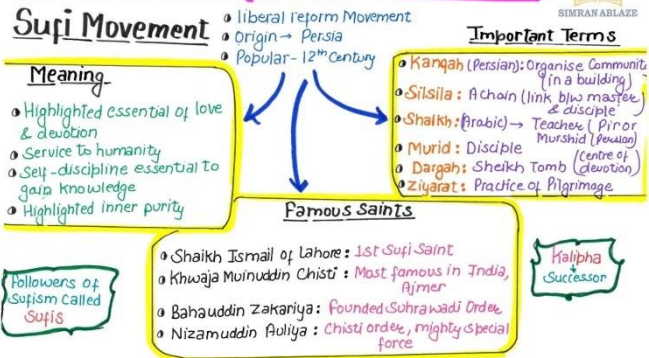 SIMRAN ABLAZE
Sufi Movement
liberal reform Movement
Origin → Persia
Popular - 12th Century
Meaning
Highlighted essential of love
& devotion
Service to humanity
Self-discipline essential to
gain knowledge
Highlighted inner purity
Important Terms
Kanqah (Persian): Organise Communit
(in a building)
Silsila: A chain (link b/w master
& disciple)
Shaikh: (Arabic) → Teacher (Pir or
Murshid (Persian)
Murid: Disciple
Dargah: Sheikh Tomb (Centre of
devotion)
Ziyarat: Practice of Pilgrimage
Famous Saints
Shaikh Ismail of Lahore: 1st Sufi Saint
Khwaja Muinuddin Chisti: Most famous in India,
Ajmer
Bahauddin Zakariya: Founded Suhrawadi Order
Nizamuddin Auliya: Chisti order, mighty special
force
Followers of
Sufism called
Sufis
Kalipha
↓
Successor